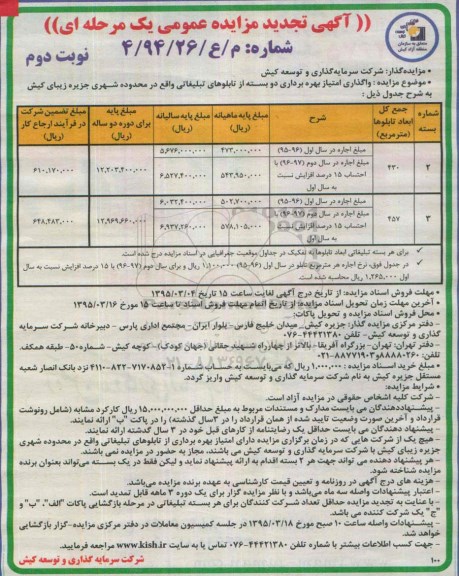 (( آگهی تجدید مزایده عمومی یک مرحله ای))
شماره: م/ع/۴/۹۴/۲۶
نوبت دوم
• مزایده‌گذار: شرکت سرمایه‌گذاری و توسعه کیش
• موضوع مزایده : واگذاری امتیاز بهره برداری دو بسته از تابلوهای تبلیغاتی واقع در محدوده شهری جزیره زیبای کیش
به شرح جدول ذیل :
شماره بسته | جمع کل ابعاد تابلوها (مترمربع) | شرح | مبلغ پایه ماهیانه (ریال) | مبلغ پایه سالیانه (ریال) | مبلغ پایه برای دوره دو ساله (ریال) | مبلغ تضمین شرکت در فرآیند ارجاع کار (ریال)
۲ | ۴۳۰ | مبلغ اجاره در سال اول (۹۶-۹۵) | ۴۷۳,۰۰۰,۰۰۰ | ۵,۶۷۶,۰۰۰,۰۰۰ | ۱۲,۲۰۳,۴۰۰,۰۰۰ | ۶۱۰,۱۷۰,۰۰۰
مبلغ اجاره در سال دوم (۹۷-۹۶) با احتساب ۱۵ درصد افزایش نسبت به سال اول | ۵۴۳,۹۵۰,۰۰۰ | ۶,۵۲۷,۴۰۰,۰۰۰
۳ | ۴۵۷ | مبلغ اجاره در سال اول (۹۶-۹۵) | ۵۰۲,۷۰۰,۰۰۰ | ۶,۰۳۲,۴۰۰,۰۰۰ | ۱۲,۹۶۹,۶۶۰,۰۰۰ | ۶۴۸,۴۸۳,۰۰۰
مبلغ اجاره در سال دوم (۹۷-۹۶) با احتساب ۱۵ درصد افزایش نسبت به سال اول | ۵۷۸,۱۰۵,۰۰۰ | ۶,۹۳۷,۲۶۰,۰۰۰
✓ برای هر بسته تبلیغاتی ابعاد تابلوها به تفکیک در جداول موقعیت جغرافیایی در اسناد مزایده درج شده است.
✓ در جدول فوق، نرخ اجاره هر مترمربع تابلو در سال اول (۹۶-۹۵) ۱,۱۰۰,۰۰۰ ریال و برای سال دوم (۹۷-۹۶) با ۱۵ درصد افزایش نسبت به سال
اول ۱,۲۶۵,۰۰۰ ریال محاسبه شده است
• مهلت فروش اسناد مزایده: از تاریخ درج آگهی لغایت ساعت ۱۵ تاریخ ۱۳۹۵/۰۳/۰۴
• آخرین مهلت زمان تحویل اسناد مزایده: از تاریخ اتمام مهلت فروش اسناد تا ساعت ۱۵ مورخ ۱۳۹۵/۰۳/۱۶
• محل فروش اسناد مزایده و تحویل پاکات:
- دفتر مرکزی مزایده گذار: جزیره کیش- میدان خلیج فارس- بلوار ایران- مجتمع اداری پارس - دبیرخانه شرکت سرمایه
گذاری و توسعه کیش- تلفن: ۴۴۴۲۱۳۸۰-۰۷۶
- دفتر تهران: تهران- بزرگراه آفریقا- بالاتر از چهارراه شهید حقانی (جهان کودک)- کوچه کیش- شماره۵۰- طبقه همکف.
تلفن: ۸۸۸۸۰۲۶۰ و ۸۸۷۷۱۹۰۳-۰۲۱
• مبلغ خرید اسناد مزایده : ۱,۰۰۰,۰۰۰ ریال که می‌بایست به حساب شماره ۱-۷۱۷۰۸۵۲-۸۲۲-۴۱۱۰ نزد بانک انصار شعبه
مستقل جزیره کیش به نام شرکت سرمایه گذاری و توسعه کیش واریز گردد.
• شرایط مزایده:
- شرکت کلیه اشخاص حقوقی در مزایده آزاد است.
- پیشنهاددهندگان می بایست مدارک و مستندات مربوط به مبلغ حداقل ۱۵,۰۰۰,۰۰۰,۰۰۰ ریال کارکرد مشابه (شامل رونوشت
قرارداد و آخرین صورت وضعیت تایید شده از همان قرارداد را در ۳سال گذشته) را در پاکت "ب" ارائه نمایند.
- پیشنهاد دهندگان می بایست حداقل یک رضایتنامه از کارهای قبل خود در ۳ سال گذشته ارائه نمایند.
- هیچ یک از شرکت هایی که در زمان برگزاری مزایده دارای امتیاز بهره برداری از تابلوهای تبلیغاتی واقع در محدوده شهری
جزیره زیبای کیش با شرکت سرمایه گذاری و توسعه کیش می باشند، مجاز به حضور در مزایده نمی باشند.
- هر پیشنهاد دهنده می تواند جهت هر ۲ بسته اقدام به ارائه پیشنهاد نماید و لیکن فقط در یک بسته می‌تواند بعنوان برنده
مزایده شناخته شود.
- هزینه های درج آگهی در روزنامه و تعیین قیمت کارشناسی به عهده برنده مزایده می‌باشد.
- اعتبار پیشنهادات واصله سه ماه می‌باشد و با نظر مزایده گزار برای یک دوره ۳ ماهه قابل تمدید است.
- با عنایت به تجدید مزایده حداقل تعداد شرکت کنندگان برای هر بسته تبلیغاتی در مرحله بازگشایی پاکات "الف"، "ب" و
"ج" یک شرکت کننده می باشد.
- پیشنهادات واصله ساعت ۱۰ صبح مورخ ۱۳۹۵/۰۳/۱۸ در جلسه کمیسیون معاملات در دفتر مرکزی مزایده-گزار بازگشایی
خواهد شد.
- جهت کسب اطلاعات بیشتر با شماره تلفن ۴۴۴۲۱۳۸۰-۰۷۶ تماس یا به سایت www.kish.ir مراجعه فرمایید.
شرکت سرمایه گذاری و توسعه کیش
۱۰۰